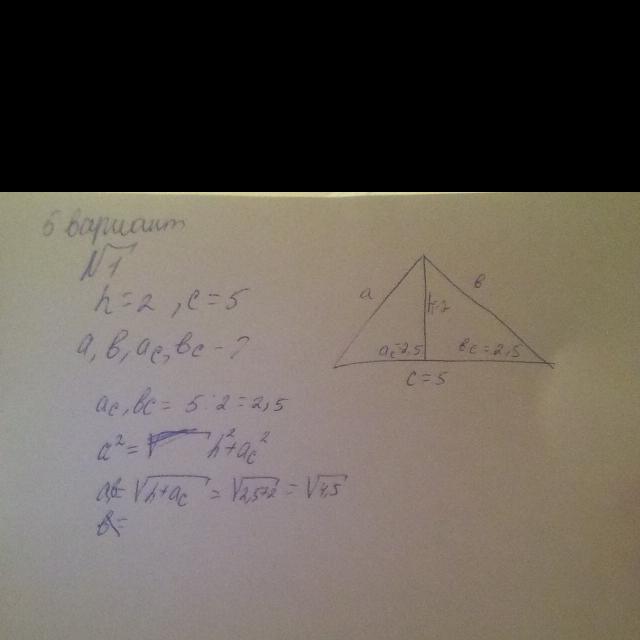 6 вариант
№1
h = 2 , c = 5
a, в, ac, вc - ?
ac, вc = 5 : 2 = 2,5
a² = √ h² + ac²
√h + ac = √2,5+2 = √4,5
в =
a
в
h=2
ac=2,5
вc = 2,5
c = 5